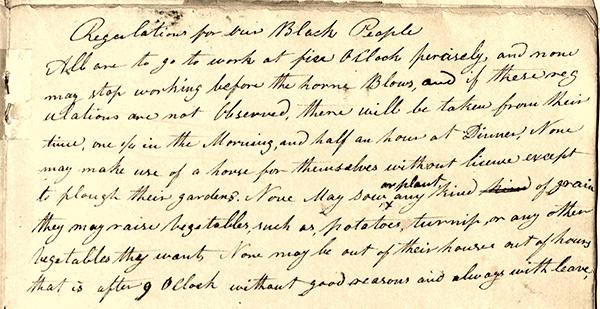 Regulations for our Black People
All are to go to work at five OClock percisely, and none
may stop working before the horne Blows, and if these reg
ulations are not Observed, there will be taken from their
time, one in the Morning, and half an hour at Dinner, None
may make use of a house for themselves without licence except
to plough their gardens. None May sow or plant any kind kind of grain
they may raise Vegatables, such as potatoes, turnip, or any other
Vegatables they want, None may be out of their houses out of hours
that is after 9 OClock without good reasons and always with leave,